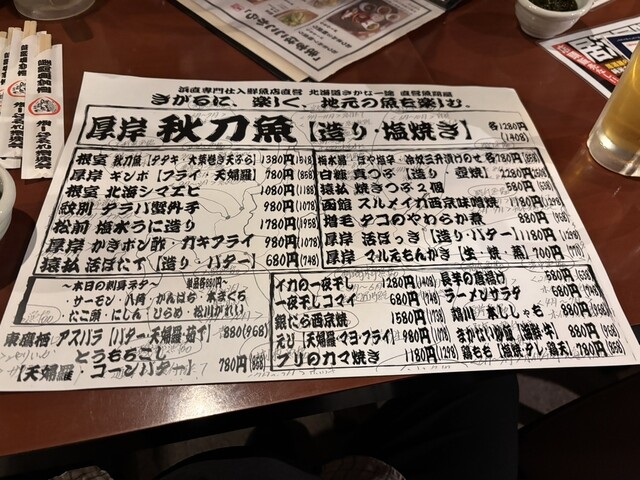 浜直専門仕入鮮魚店直営 北海道さかな一途 直営魚類屋
きがるに、楽しく、地元の魚を楽しむ。
厚岸 秋刀魚【造り・塩焼き】各1280円(1408)
根室 秋刀魚【タタキ・大葉巻き天ぷら】1380円(1518)
厚岸 ギンポ【フライ・天婦羅】780円(858)
根室 北海シマエビ 1080円(1188)
紋別 タラバ蟹外子 980円(1078)
松前 塩水うに造り 1780円(1958)
厚岸 かきポン酢・カキフライ 980円(1078)
猿払 活ほたて【造り・バター】680円(748)
ほや塩辛・冷汁三升漬けのせ 各780円(858)
白糠 真つぶ【造り・壺焼】2280円
猿払 焼きつぶ2個 580円(638)
函館 スルメイカ西京味噌焼 1180円(1298)
増毛 タコのやわらか煮 880円
厚岸 活ほっき【造り・バター】1180円(1298)
厚岸 マルえもんかき【生・焼・蒸】700円(770)
～本日の刺身ネタ～ 単品各680円～
・サーモン・八角・かんぱち・本まぐろ
・たこ頭・にしん・ひらめ・松川がれい
東鷹栖 アスパラ【バター・天婦羅・茹で】880(968)
とうもろこし
【天婦羅・コーンバター】780円(858)
イカの一夜干し 1280円(1408)
一夜干しコマイ 680円(748)
銀だら西京焼 1580円(1738)
えび【天婦羅・マヨ・フライ】980円(1078)
ブリのカマ焼き 1180円(1298)
長芋の唐揚げ 580円(638)
ラーメンサラダ 680円(748)
本ししゃも 880円(968)
まかない炒飯【海鮮・牛】880円(968)
鶏もも【塩焼・タレ・鶏天】780円(858)